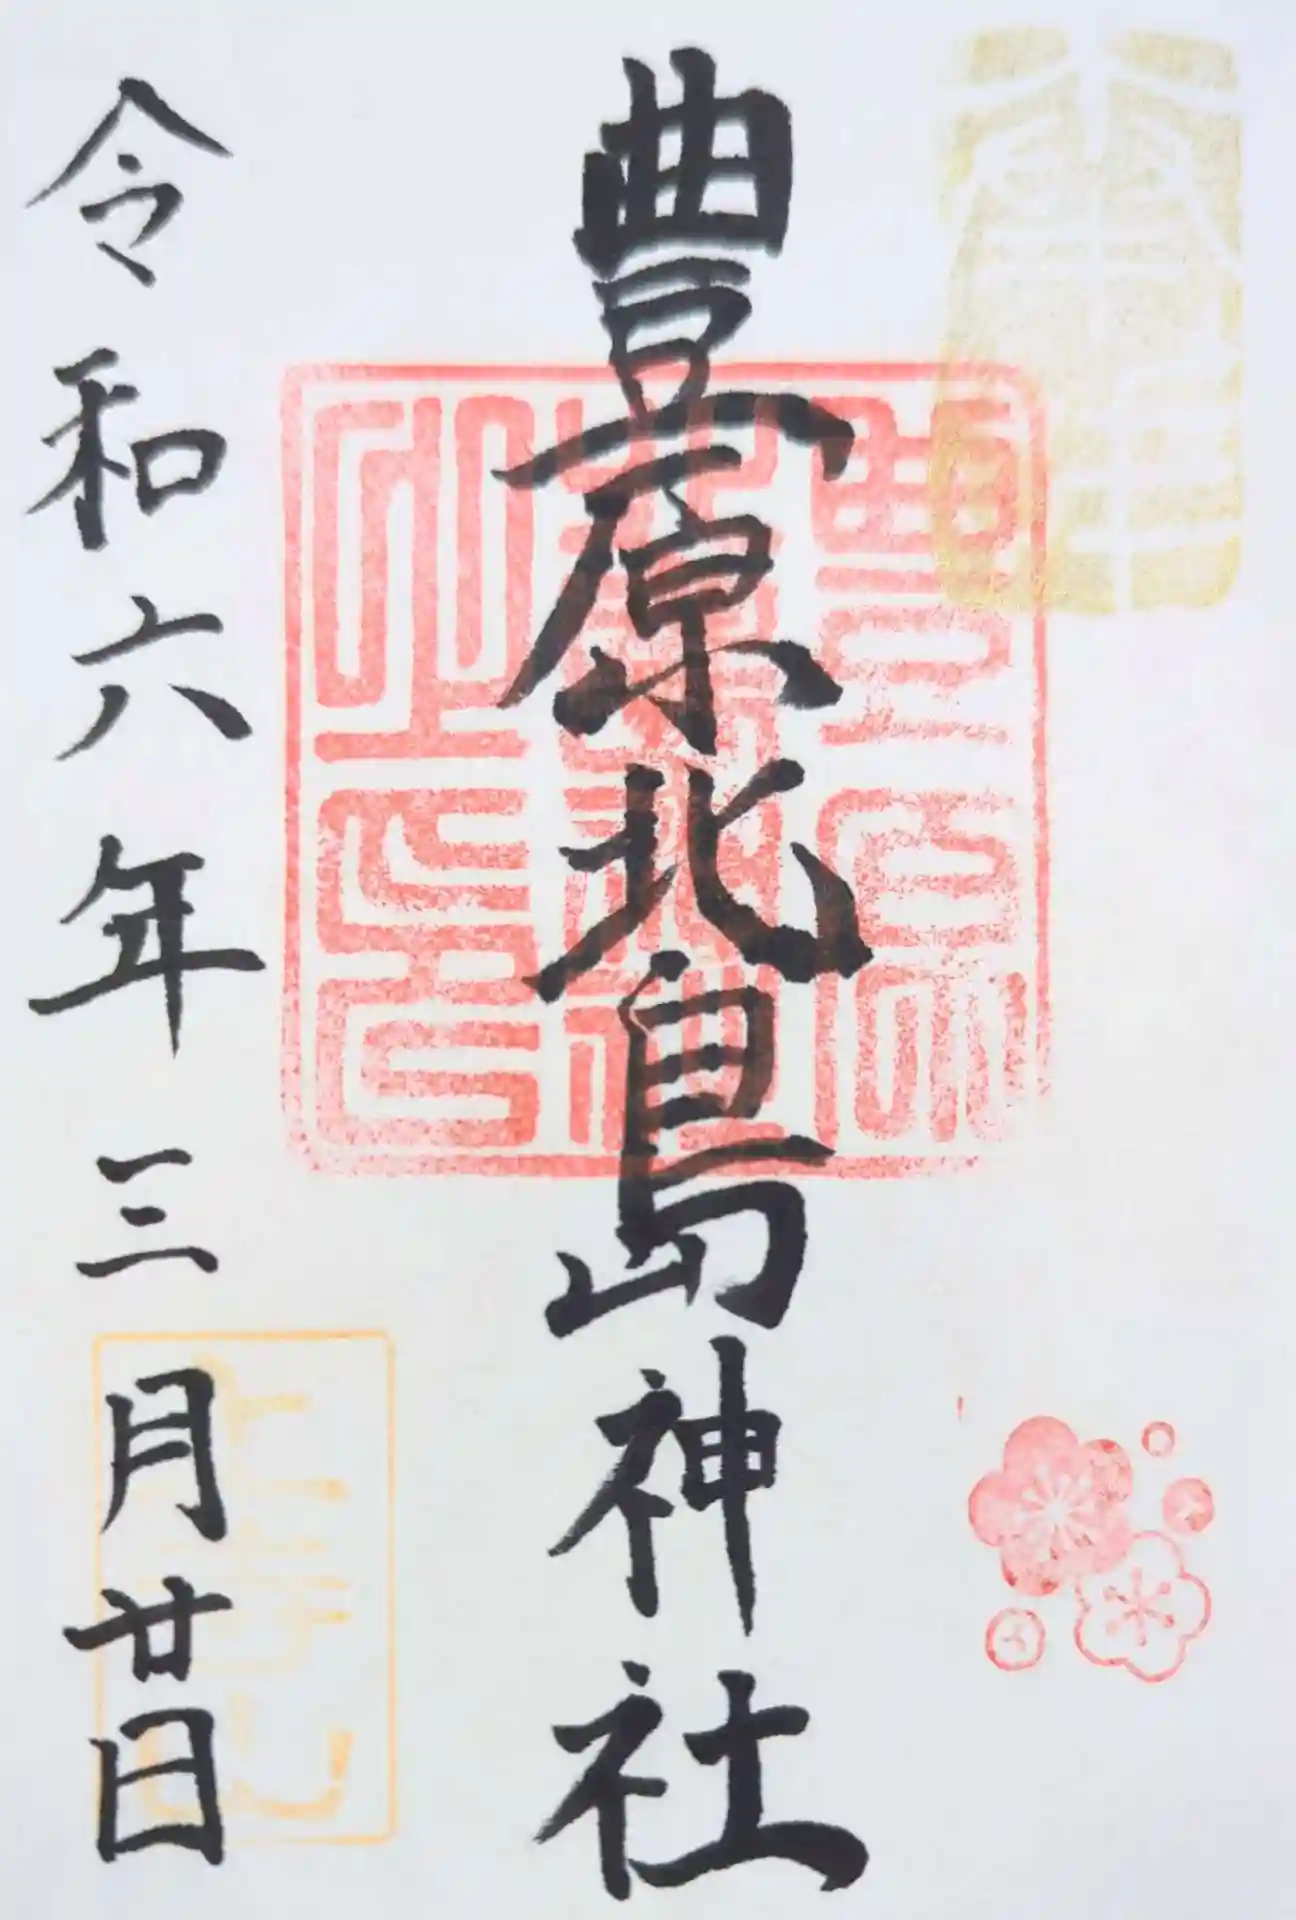 奉拝
豊原北島神社
豊原北島神社之印
令和六年三月廿日